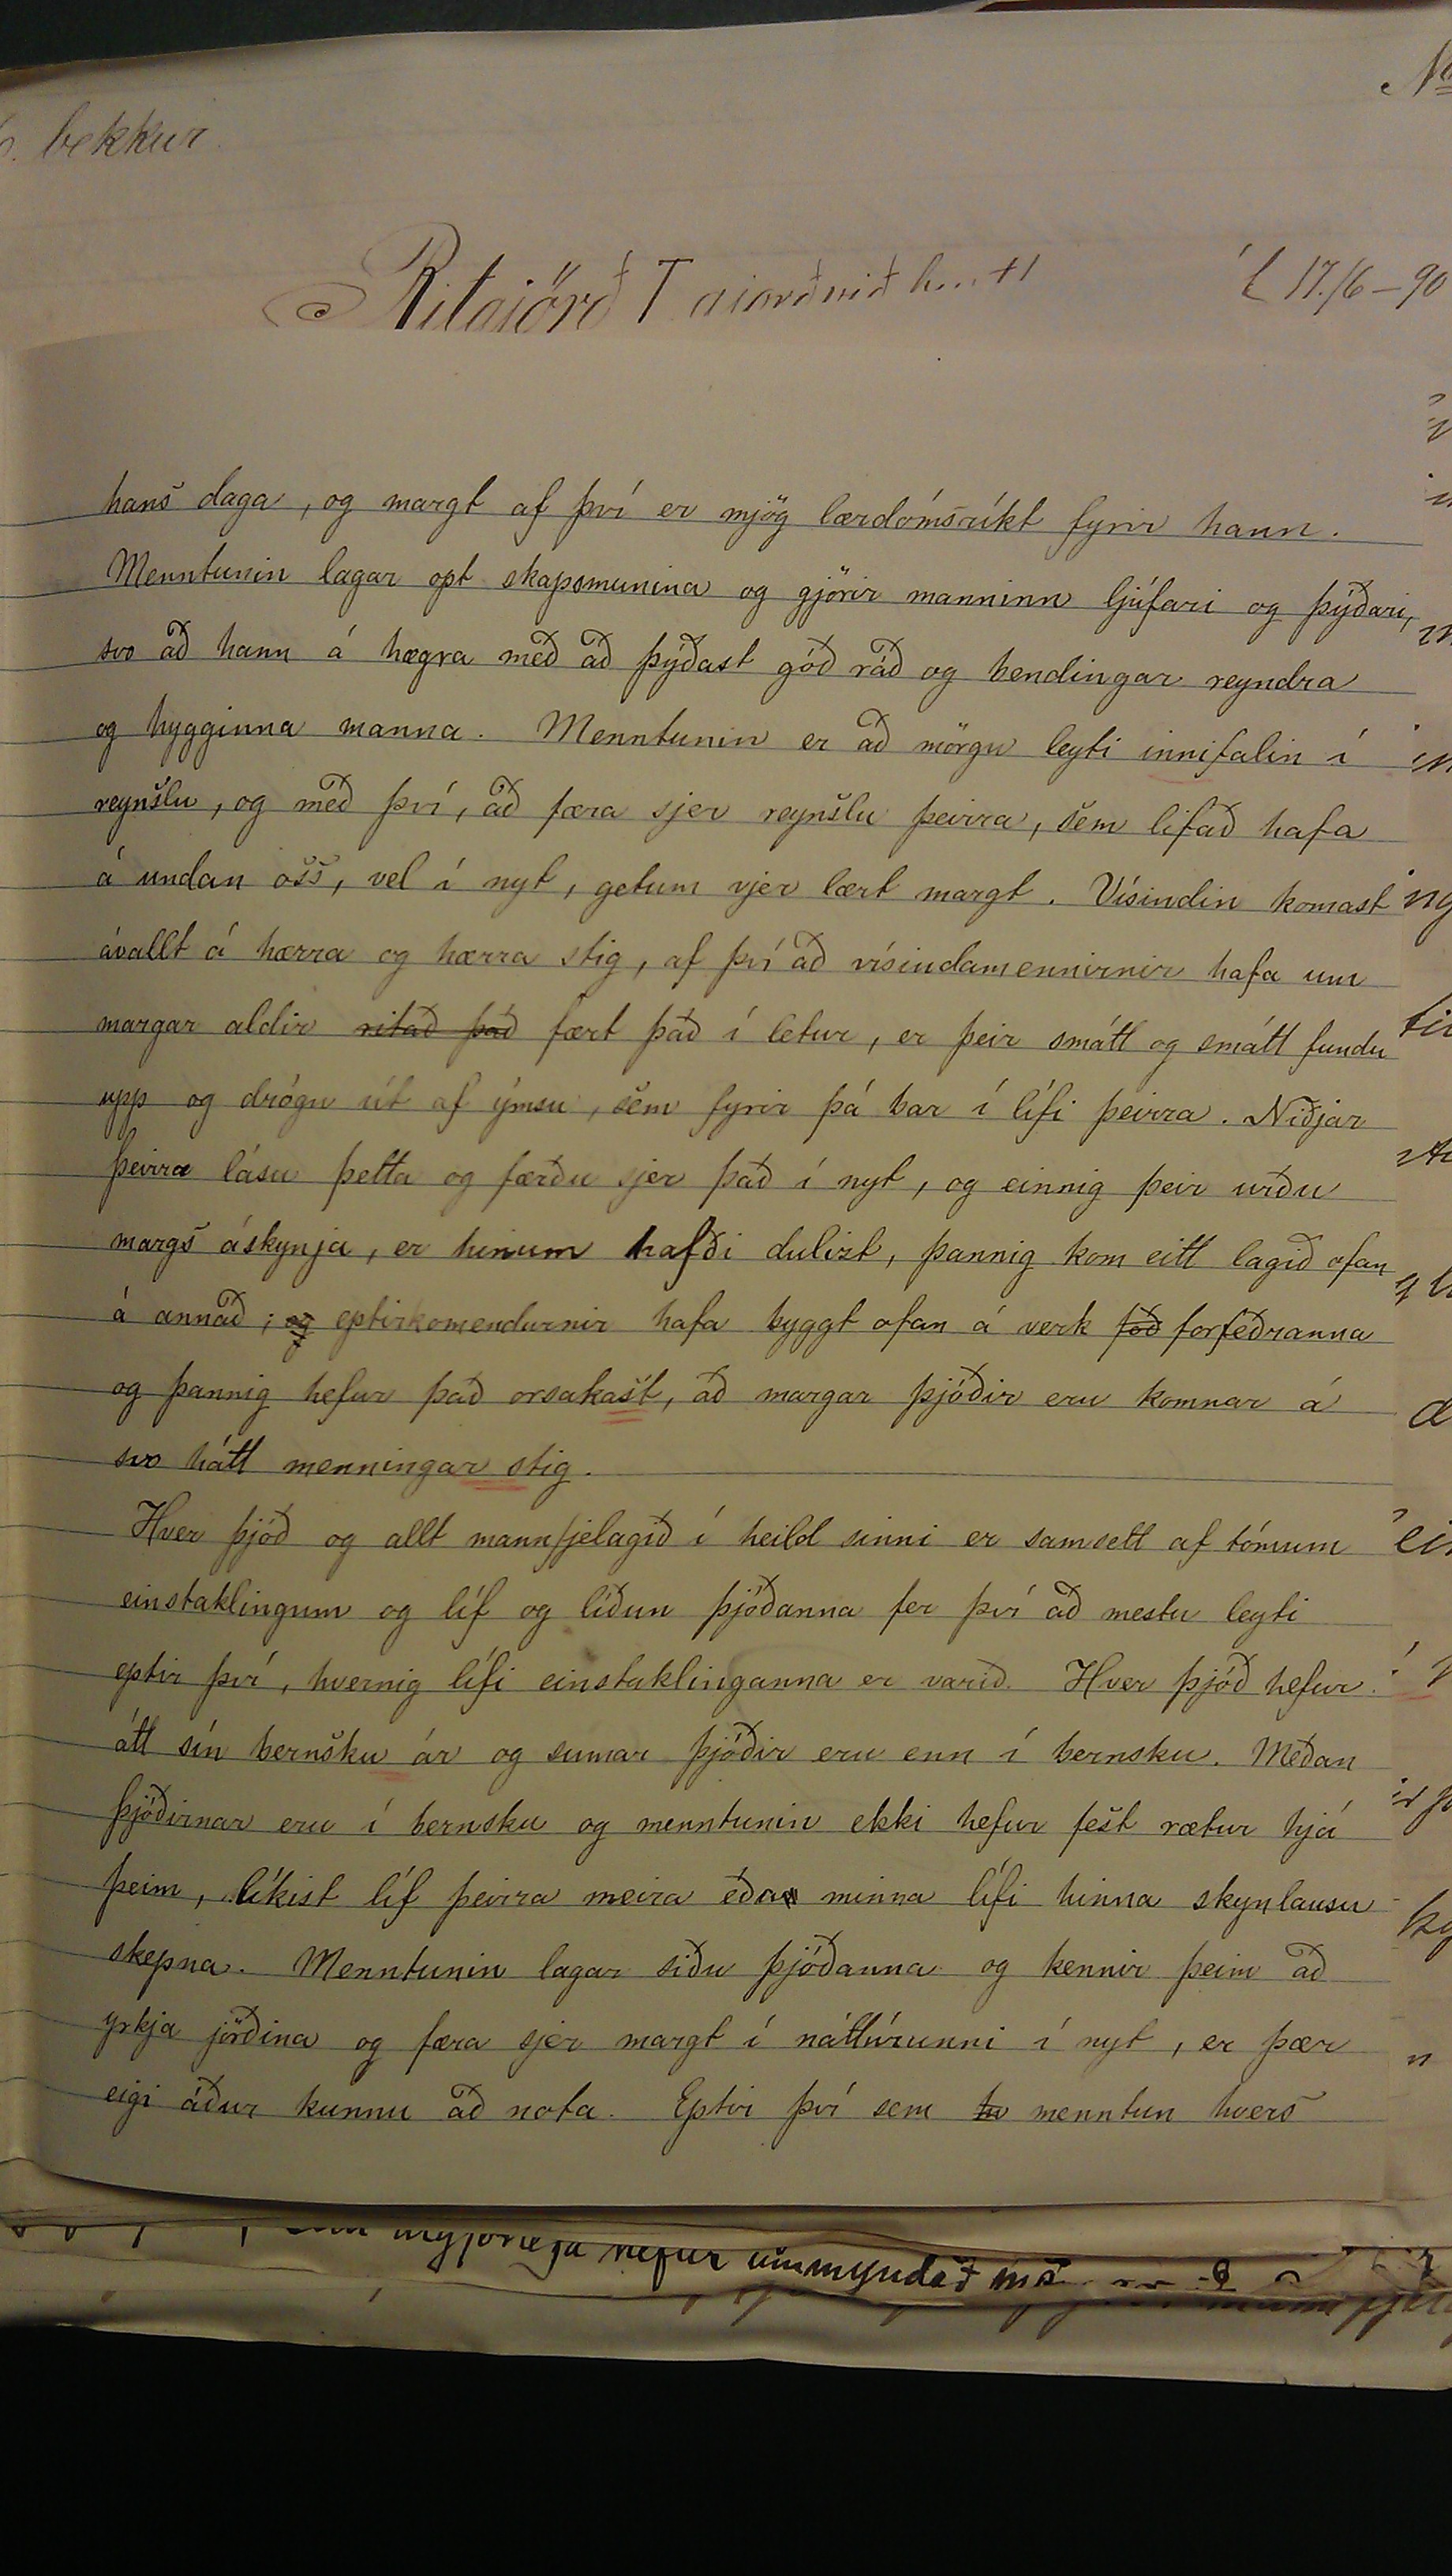 bekkur
17./6-90
hans daga, og margt af því er mjög lærdómsríkt fyrir hann.
Menntunin lagar opt skapsmunina og gjörir manninn ljúfari og þýðari,
svo að hann á hægra með að þýðast góð ráð og bendingar reyndra
og hygginna manna. Menntunin er að mörgu leyti innifalin í
reynslu, og með því, að færa sjer reynslu þeirra, sem lifað hafa
á undan oss, vel í nyt, getum vjer lært margt. Vísindin komast
ávallt á hærra og hærra stig, af því að vísindamennirnir hafa um
margar aldir ritað það fært það í letur, er þeir smátt og smátt fundu
upp og drógu út af ýmsu, sem fyrir þá bar í lífi þeirra. Niðjar
þeirra lásu þetta og færðu sjer það í nyt, og einnig þeir urðu
margs áskynja, er hinum hafði dulizt, þannig kom eitt lagið ofan
á annað; og eptirkomendurnir hafa byggt ofan á verk föð forfeðranna
og þannig hefur það orsakast, að margar þjóðir eru komnar á
svo hátt menningar stig.
Hver þjóð og allt mannfjelagið í heild sinni er samsett af tómum
einstaklingum og líf og líðun þjóðanna fer því að mestu leyti
eptir því, hvernig lífi einstaklinganna er varið. Hver þjóð hefur
átt sín bernsku ár og sumar þjóðir eru enn í bernsku. Meðan
þjóðirnar eru í bernsku og menntunin ekki hefur fest rætur hjá
þeim, líkist líf þeirra meira eða minna lífi hinna skynlausu
skepna. Menntunin lagar siðu þjóðanna og kennir þeim að
yrkja jörðina og færa sjer margt í náttúrunni í nyt, er þær
eigi áður kunnu að nota. Eptir því sem hv menntun hvers
hefur ummyndað